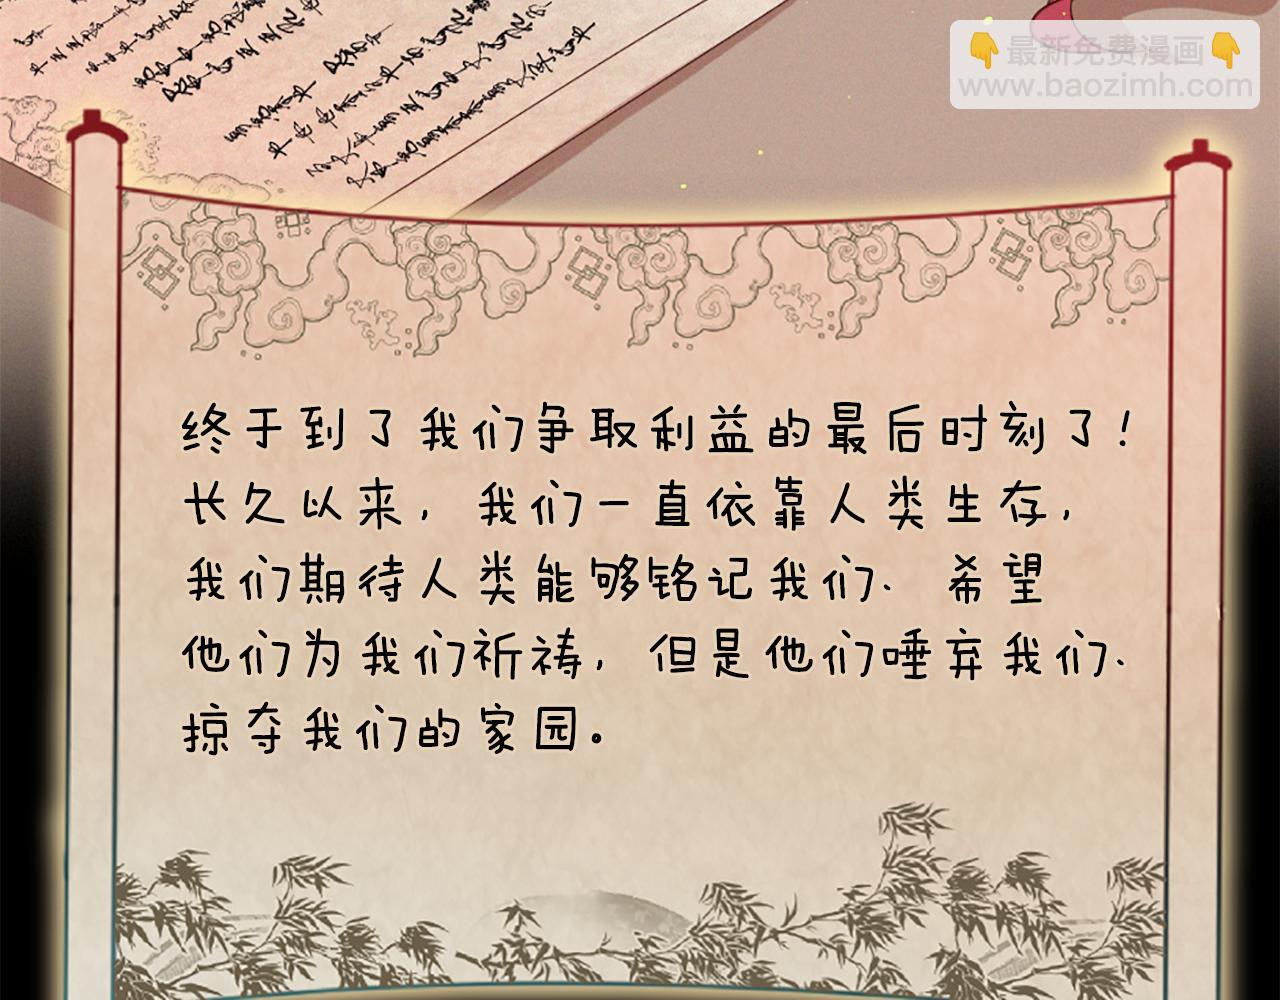 👇最新免费漫画👇
www.baozimh.com
终于到了我们争取利益的最后时刻了！
长久以来，我们一直依靠人类生存，
我们期待人类能够铭记我们、希望
他们为我们祈祷，但是他们唾弃我们、
掠夺我们的家园。